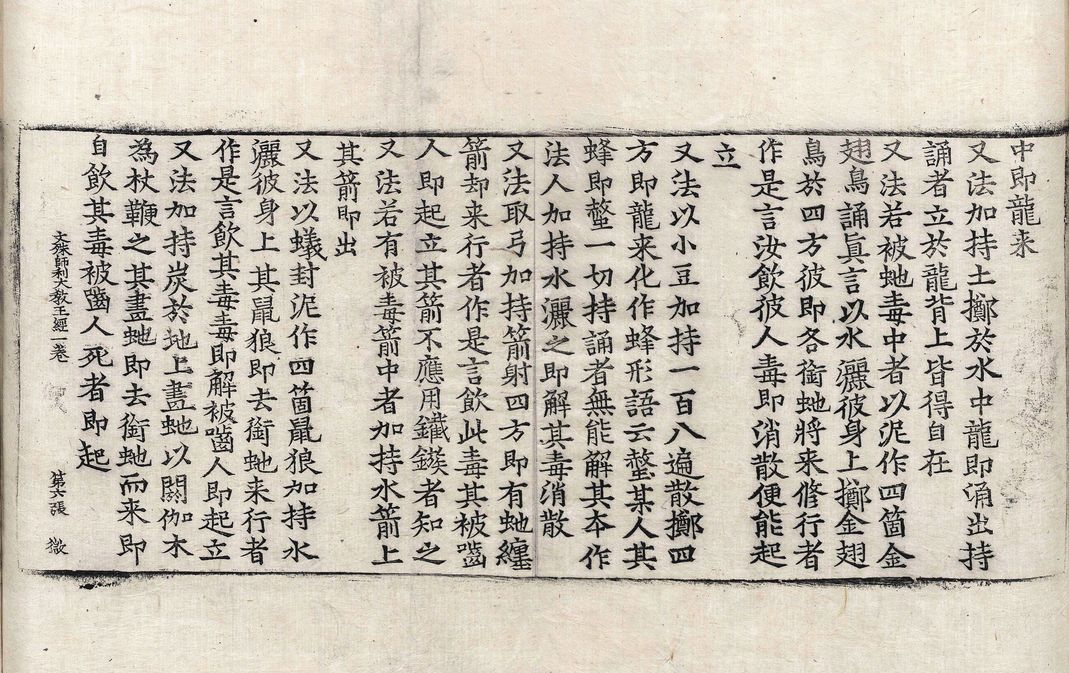 中即龍来
又法加持土擲於水中龍即涌出持
誦者立於龍背上皆得自在
又法若被虵毒中者以泥作四箇金
翅鳥誦眞言以水灑彼身上擲金翅
鳥於四方彼即各銜虵將来修行者
作是言汝飲彼人毒即消散便能起
立
又法以小豆加持一百八遍散擲四
方即龍来化作蜂形語云螫某人其
蜂即螫一切持誦者無能解其本作
法人加持水灑之即解其毒消散
又法取弓加持箭射四方即有虵纏
箭却来行者作是言飲此毒其被嚙
人即起立其箭不應用鑯鏃者知之
又法若有被毒箭中者加持水箭上
其箭即出
又法以蟻封泥作四箇鼠狼加持水
灑彼身上其鼠狼即去銜虵来行者
作是言飲其毒毒即解被嚙人即起立
又法加持炭於地上畫虵以閼伽木
為杖鞭之其畫虵即去銜虵而来即
自飲其毒被嚙人死者即起
文殊師利大教王經一卷 第六張 㵪